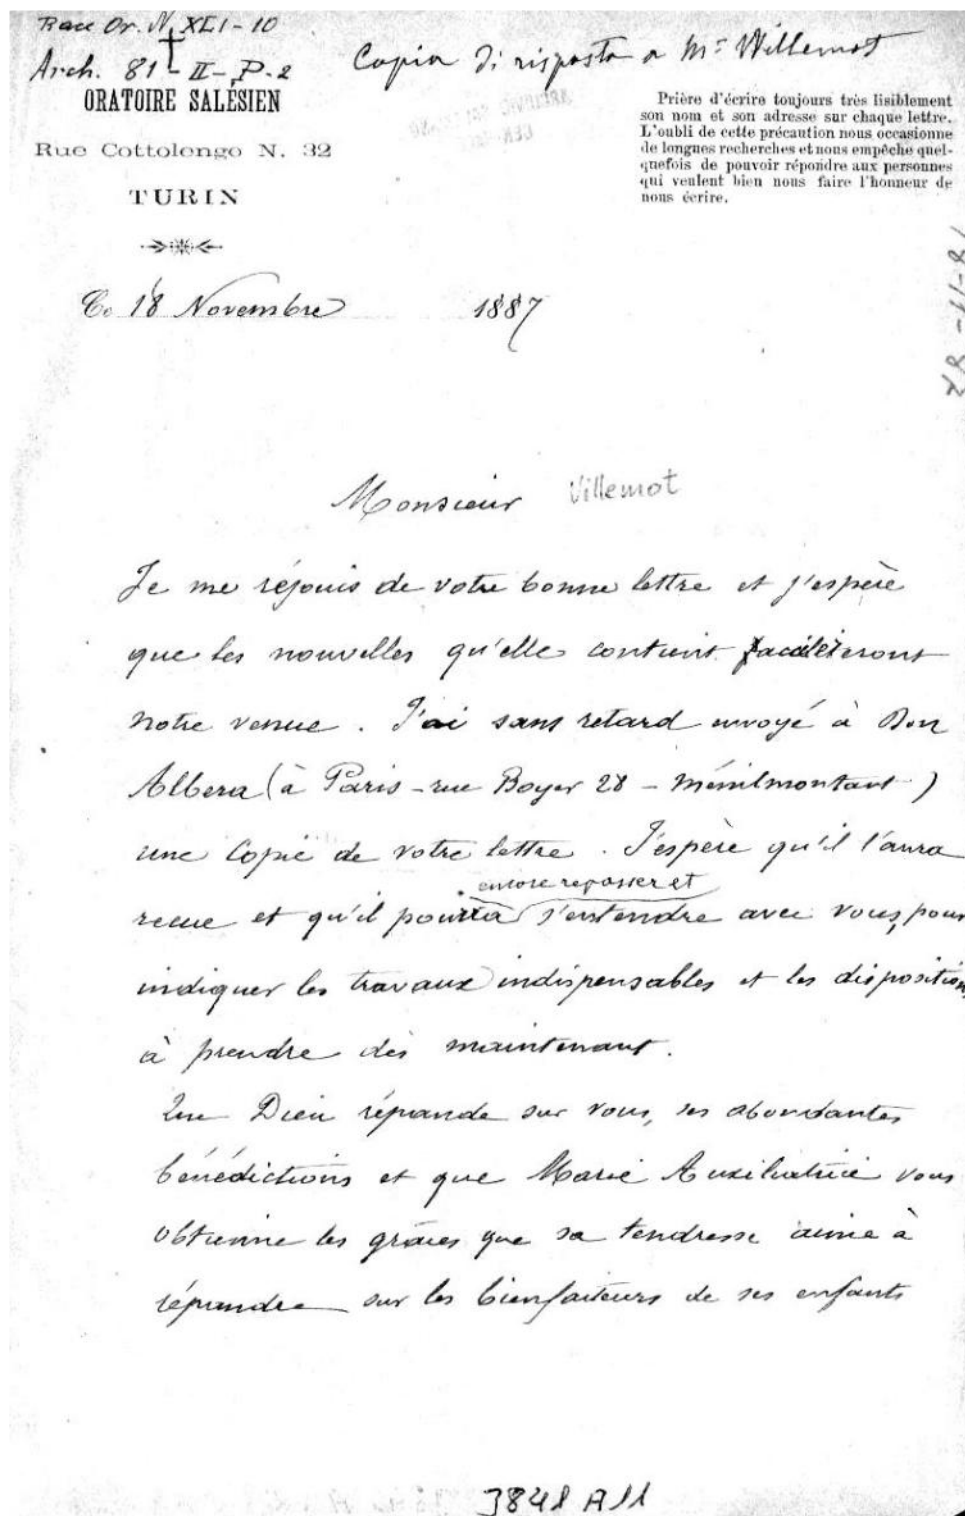 Race Or. N. XLI-10
Arch. 81-II-P-2
Copia di risposta a Mr Willemot
ORATOIRE SALÉSIEN
Rue Cottolengo N. 32
TURIN
Prière d'écrire toujours très lisiblement
son nom et son adresse sur chaque lettre.
L'oubli de cette précaution nous occasionne
de longues recherches et nous empêche quel-
quefois de pouvoir répondre aux personnes
qui veulent bien nous faire l'honneur de
nous écrire.
Ce 18 Novembre 1887
18-11-87
Monsieur Villemot
Je me réjouis de votre bonne lettre et j'espère
que les nouvelles qu'elle contient faciliteront
notre venue. J'ai sans retard envoyé à Don
Albera (à Paris - rue Boyer 28 - Ménilmontant)
une copie de votre lettre. J'espère qu'il l'aura
encore repasser et
recue et qu'il pourra s'entendre avec vous, pour
indiquer les travaux indispensables et les dispositions
à prendre dès maintenant.
Que Dieu répande sur vous, ses abondantes
bénédictions et que Marie Auxiliatrice vous
obtienne les grâces que sa tendresse aime à
répandre sur les bienfaiteurs de ses enfants
3848 A11